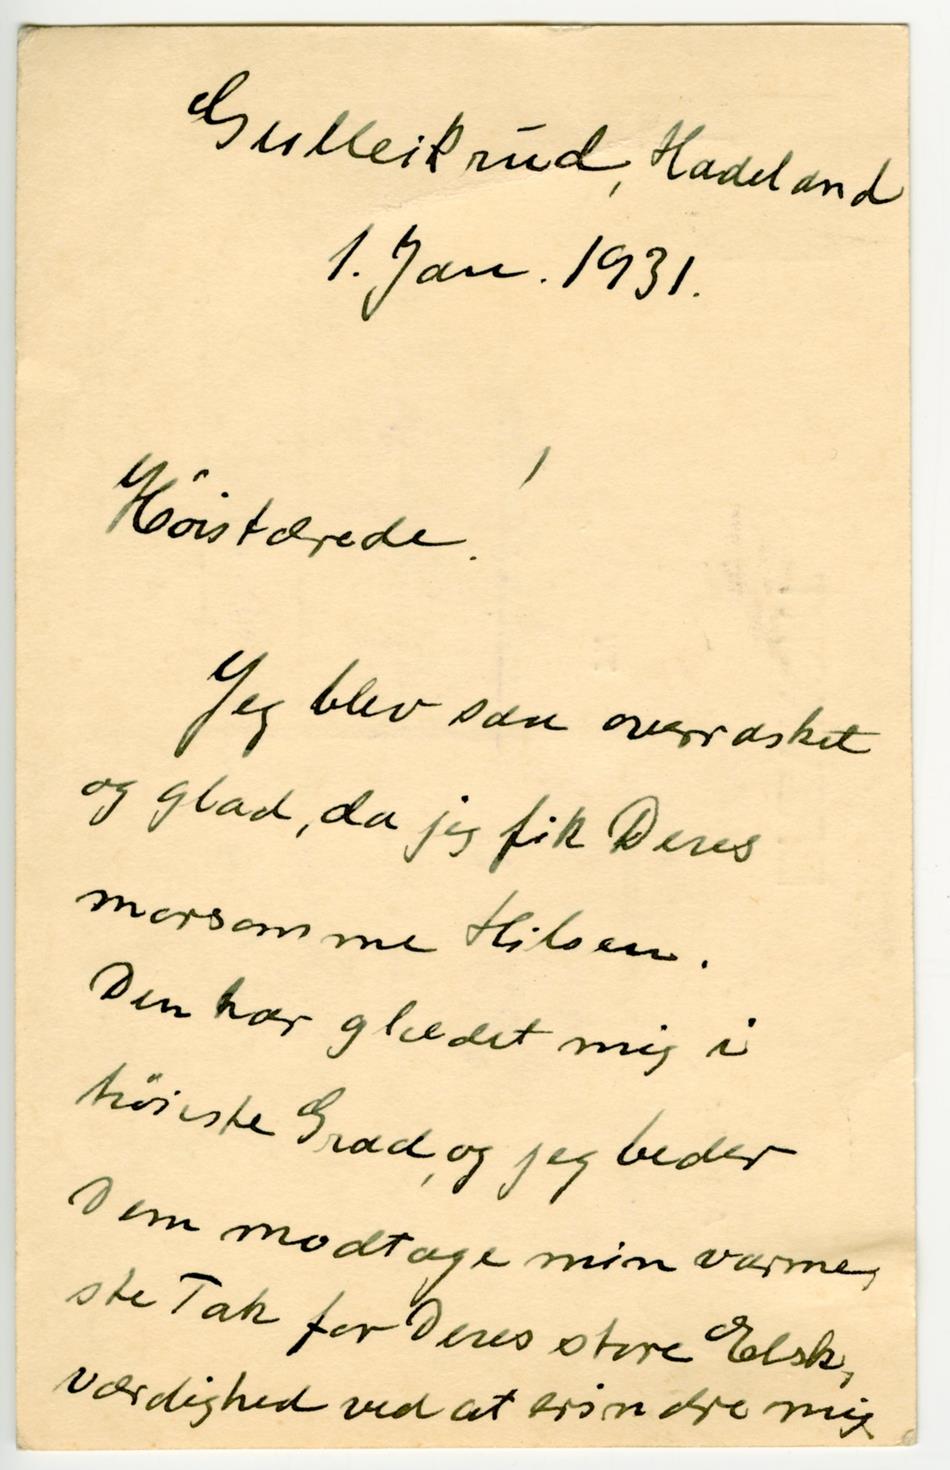 Gulleikrud, Hadeland
1. Jan. 1931.
Höistærede!
Jeg blev saa overrasket
og glad, da jeg fik Deres
morsomme Hilsen.
Den har glædet mig i
höieste Grad, og jeg beder
Dem modtage min varme,
ste Tak for Deres store Elsk,
værdighed ved at erindre mig